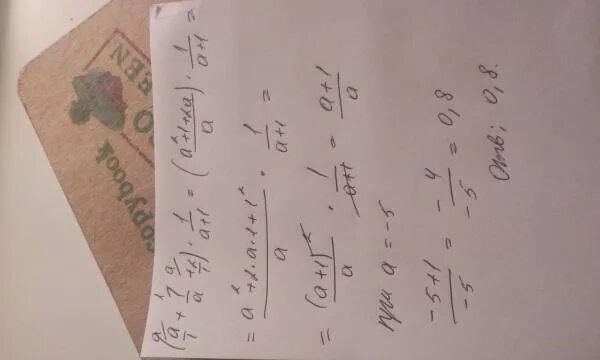 (a/1 + 1/a + 2/1) · 1/(a+1) = ((a²+1+2a)/a) · 1/(a+1) =
= (a²+2·a·1+1²)/a · 1/(a+1) =
= (a+1)²/a · 1/(a+1) = (a+1)/a
при a = -5
(-5+1)/(-5) = -4/-5 = 0,8
Отв; 0,8.
copybook